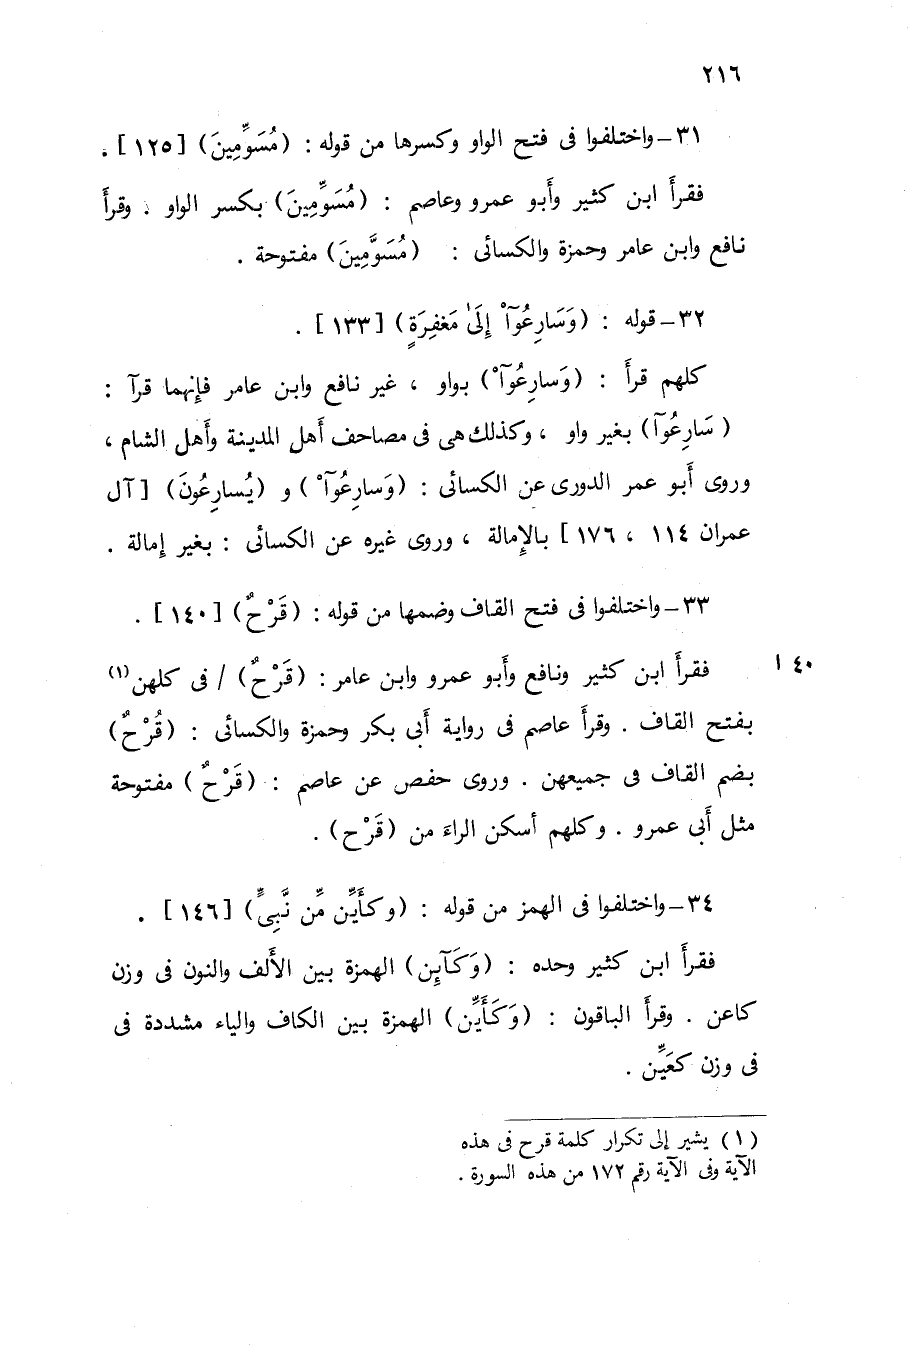 ٢١٦
٣١ – واختلفوا فى فتح الواو وكسرها من قوله : (مُسَوِّمِينَ) [١٢٥] .
فقرأَ ابن كثير وأَبو عمرو وعاصم : (مُسَوِّمِينَ) بكسر الواو . وقرأَ
نافع وابن عامر وحمزة والكسائى : (مُسَوَّمِينَ) مفتوحة .
٣٢ – قوله : (وَسَارِعُوٓاْ إِلَىٰ مَغْفِرَةٍ) [١٣٣] .
كلهم قرأَ : (وَسارِعُوٓاْ) بواو ، غير نافع وابن عامر فإنهما قرآ :
(سَارِعُوٓا) بغير واو ، وكذلك هى فى مصاحف أَهل المدينة وأَهل الشام ،
وروى أَبو عمر الدورى عن الكسائى : (وَسارِعُوٓاْ) و (يُسارِعُونَ) [آل
عمران ١١٤ ، ١٧٦] بالإِمالة ، وروى غيره عن الكسائى : بغير إِمالة .
٣٣ – واختلفوا فى فتح القاف وضمها من قوله : (قَرْحٌ) [١٤٠] .
فقرأَ ابن كثير ونافع وأَبو عمرو وابن عامر : (قَرْحٌ) / فى كلهن(١) ٤٠ ا
بفتح القاف . وقرأَ عاصم فى رواية أَبى بكر وحمزة والكسائى : (قُرْحٌ)
بضم القاف فى جميعهن . وروى حفص عن عاصم : (قَرْحٌ) مفتوحة
مثل أَبى عمرو . وكلهم أسكن الراءَ من (قَرْح) .
٣٤ – واختلفوا فى الهمز من قوله : (وكأَيِّن مِّن نَّبِىٍّ) [١٤٦] .
فقرأَ ابن كثير وحده : (وَكَآئِن) الهمزة بين الأَلف والنون فى وزن
كاعن . وقرأَ الباقون : (وَكَأَيِّن) الهمزة بين الكاف والياء مشددة فى
فى وزن كعَيِّن .
(١) يشير إلى تكرار كلمة قرح فى هذه
الآية وفى الآية رقم ١٧٢ من هذه السورة .